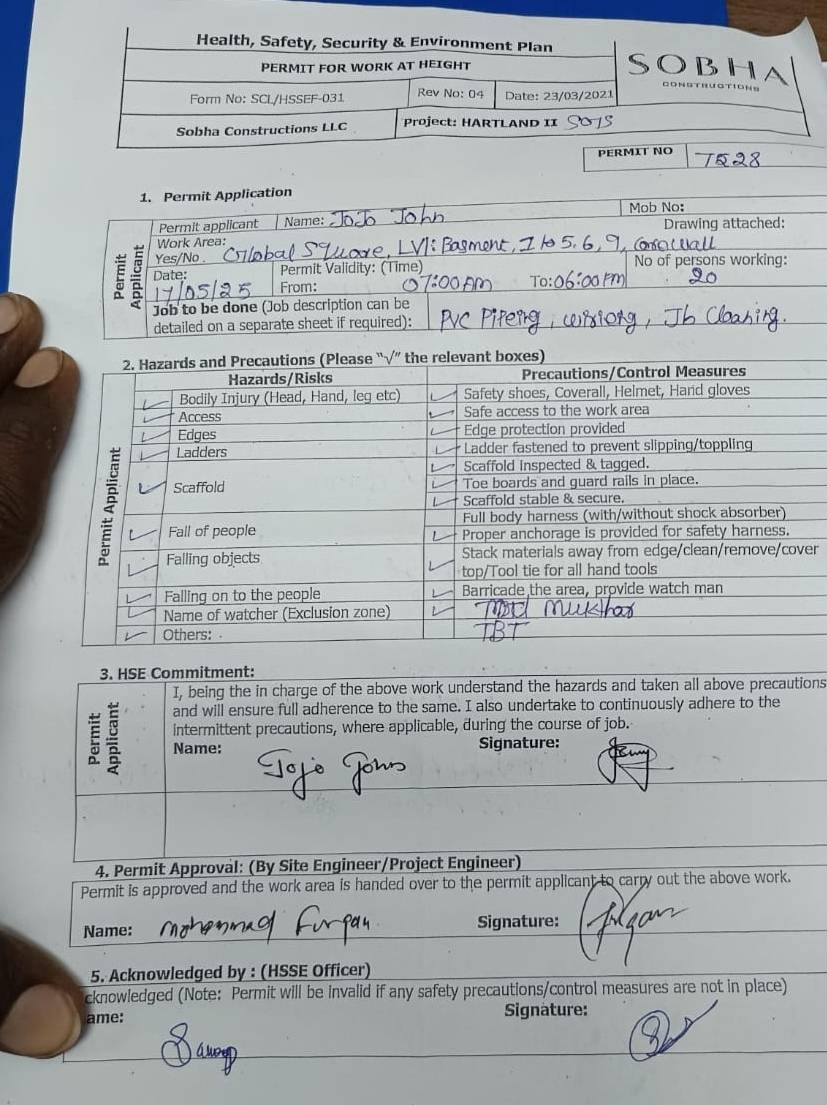 Health, Safety, Security & Environment Plan
PERMIT FOR WORK AT HEIGHT
SOBHA
CONSTRUCTIONS
Form No: SCL/HSSEF-031
Rev No: 04
Date: 23/03/2021
Sobha Constructions LLC
Project: HARTLAND II
PERMIT NO
1. Permit Application
Permit Applicant
Permit applicant
Name: JoJo John
Mob No:
Work Area:
Drawing attached:
Yes/No. Global Square, LVI: Basment, 1 to 5, 6, 9,
Date:
Permit Validity: (Time)
No of persons working:
17/05/25
From: 07:00AM
To: 06:00PM
20
Job to be done (Job description can be
detailed on a separate sheet if required):
PVC Pipeing, wiriong, Jb Cloaning.
2. Hazards and Precautions (Please "√" the relevant boxes)
Permit Applicant
Hazards/Risks
Precautions/Control Measures
Bodily Injury (Head, Hand, leg etc)
Safety shoes, Coverall, Helmet, Hand gloves
Access
Safe access to the work area
Edges
Edge protection provided
Ladders
Ladder fastened to prevent slipping/toppling
Scaffold
Scaffold Inspected & tagged.
Toe boards and guard rails in place.
Scaffold stable & secure.
Fall of people
Full body harness (with/without shock absorber)
Proper anchorage is provided for safety harness.
Falling objects
Stack materials away from edge/clean/remove/cover
top/Tool tie for all hand tools
Falling on to the people
Barricade the area, provide watch man
Name of watcher (Exclusion zone)
Md Mukhar
Others:
TBT
3. HSE Commitment:
Permit Applicant
I, being the in charge of the above work understand the hazards and taken all above precautions
and will ensure full adherence to the same. I also undertake to continuously adhere to the
intermittent precautions, where applicable, during the course of job.
Name: Jojo John
Signature:
4. Permit Approval: (By Site Engineer/Project Engineer)
Permit is approved and the work area is handed over to the permit applicant to carry out the above work.
Name: Mohammad Furqan
Signature:
5. Acknowledged by : (HSSE Officer)
cknowledged (Note: Permit will be invalid if any safety precautions/control measures are not in place)
ame:
Signature: